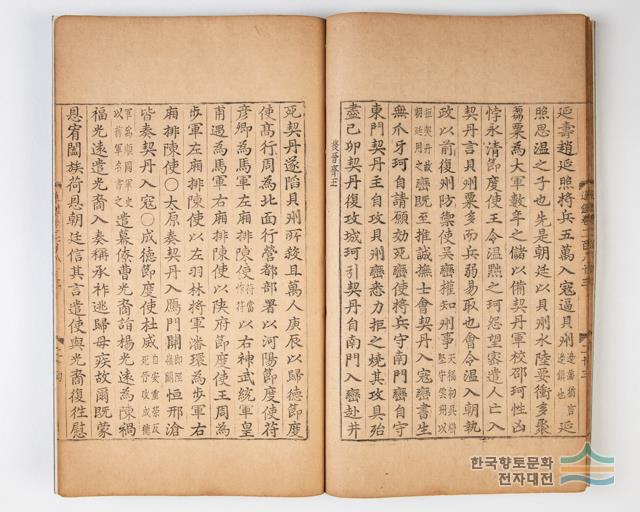 延壽趙延照將兵五萬入寇逼貝州邊藩猶言邊鎮也延
照思溫之子也先是朝廷以貝州水陸要衝多聚
芻粟為大軍數年之儲以備契丹軍校邵珂性凶
悖永清節度使王令溫黜之珂怨望密遣人亡入
契丹言貝州粟多而兵弱易取也會令溫入朝執
政以前復州防禦使吳巒權知州事天福初吳巒堅守雲州以
拒契丹故朝廷用之巒既至推誠撫士會契丹入寇巒書生
無爪牙珂自請願効死巒使將兵守南門巒自守
東門契丹主自攻貝州巒悉力拒之燒其攻具殆
盡己卯契丹復攻城珂引契丹自南門入巒赴井
後晉齊王
死契丹遂陷貝州所殺且萬人庚辰以歸德節度
使高行周為北面行營都部署以河陽節度使符
彥卿為馬軍左廂排陳使以右神武統軍皇
甫遇為馬軍右廂排陳使以陝府節度使王周為
步軍左廂排陳使以左羽林將軍潘環為步軍右
廂排陳使○太原奏契丹入鴈門關恒邢滄
皆奏契丹入寇○成德節度使杜威
遣幕僚曹光裔詣楊光遠為陳禍
福光遠遣光裔入奏稱承祚逃歸母疾故爾既蒙
恩宥闔族荷恩朝廷信其言遣使與光裔復往慰
한국향토문화
전자대전